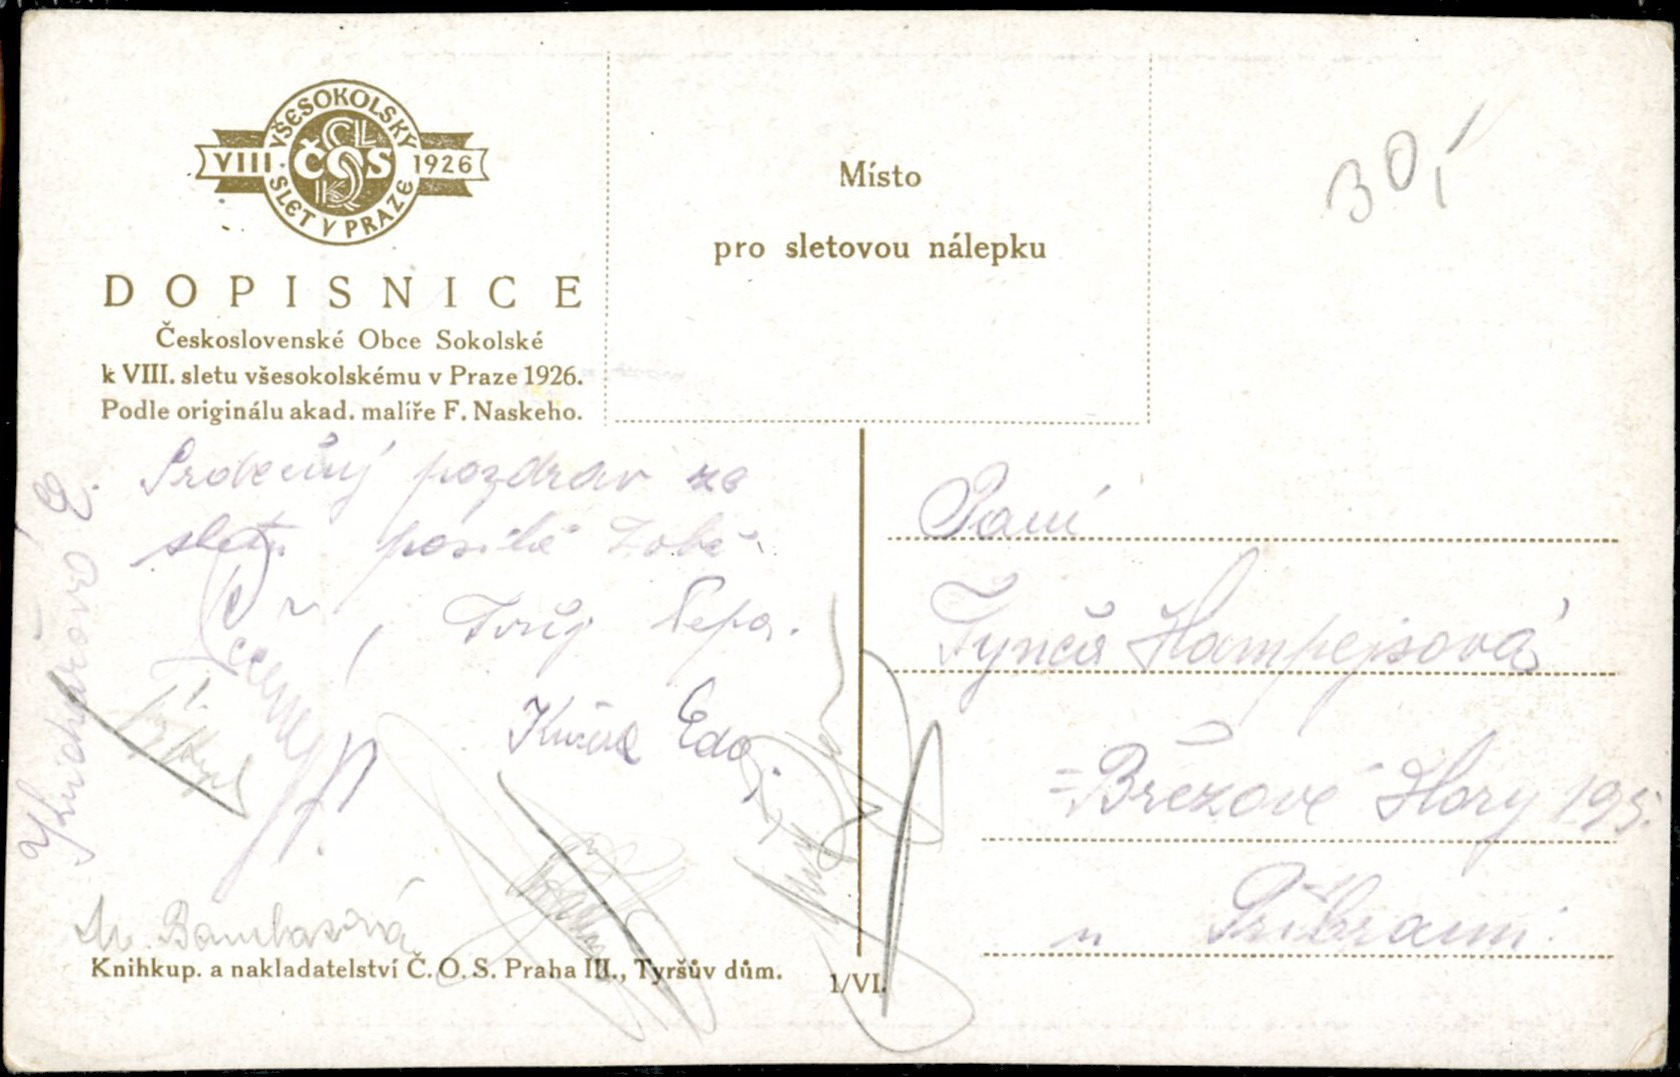 VŠESOKOLSKÝ
VIII. ČOS 1926
SLET V PRAZE
DOPISNICE
Československé Obce Sokolské
k VIII. sletu všesokolskému v Praze 1926.
Podle originálu akad. malíře F. Naskeho.
Místo
pro sletovou nálepku
30,-
Srdečný pozdrav ze
sletu posílá Tobě
Tvůj Pepa.
Eda
Paní
Tynča Hampejsová
=Březové Hory 195.
u Příbrami.
M. Bambasová
Knihkup. a nakladatelství Č. O. S. Praha III., Tyršův dům.
1/VI.